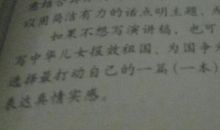 双用简洁有力的话点明主题、
如果不想写演讲稿，也可
写中华儿女报效祖国、为国争
选择最打动自己的一篇（一本）
表达真情实感。